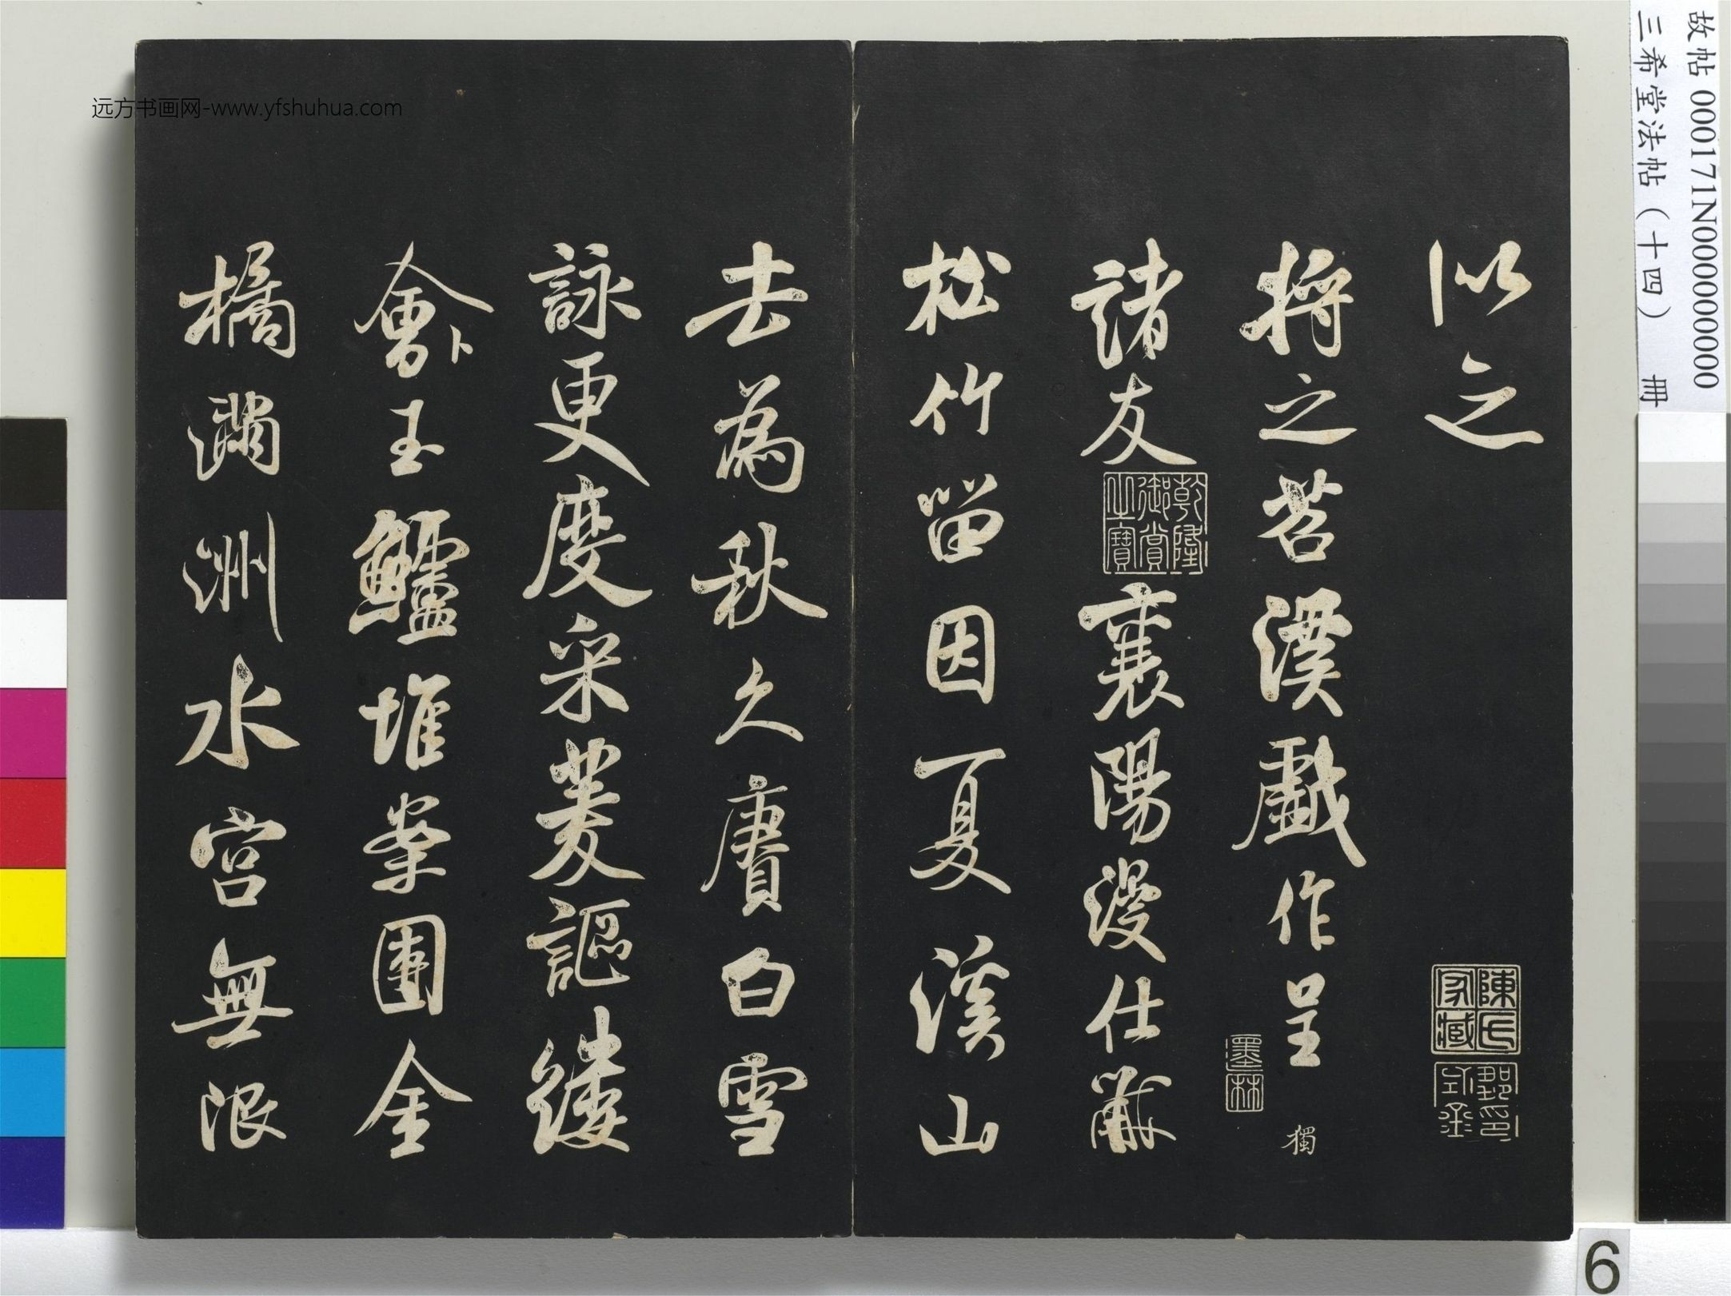 故帖 000171N000000000
三希堂法帖（十四） 冊
以之
陳氏家藏
將之苕溪戲作呈
獨
墨林
諸友
乾隆御賞之寶
襄陽漫仕黻
松竹留因夏溪山
去為秋久賡白雪
詠更度采菱謳縷
會卜玉鱸堆案團金
橘滿洲水宮無限
远方书画网-www.yfshuhua.com
6